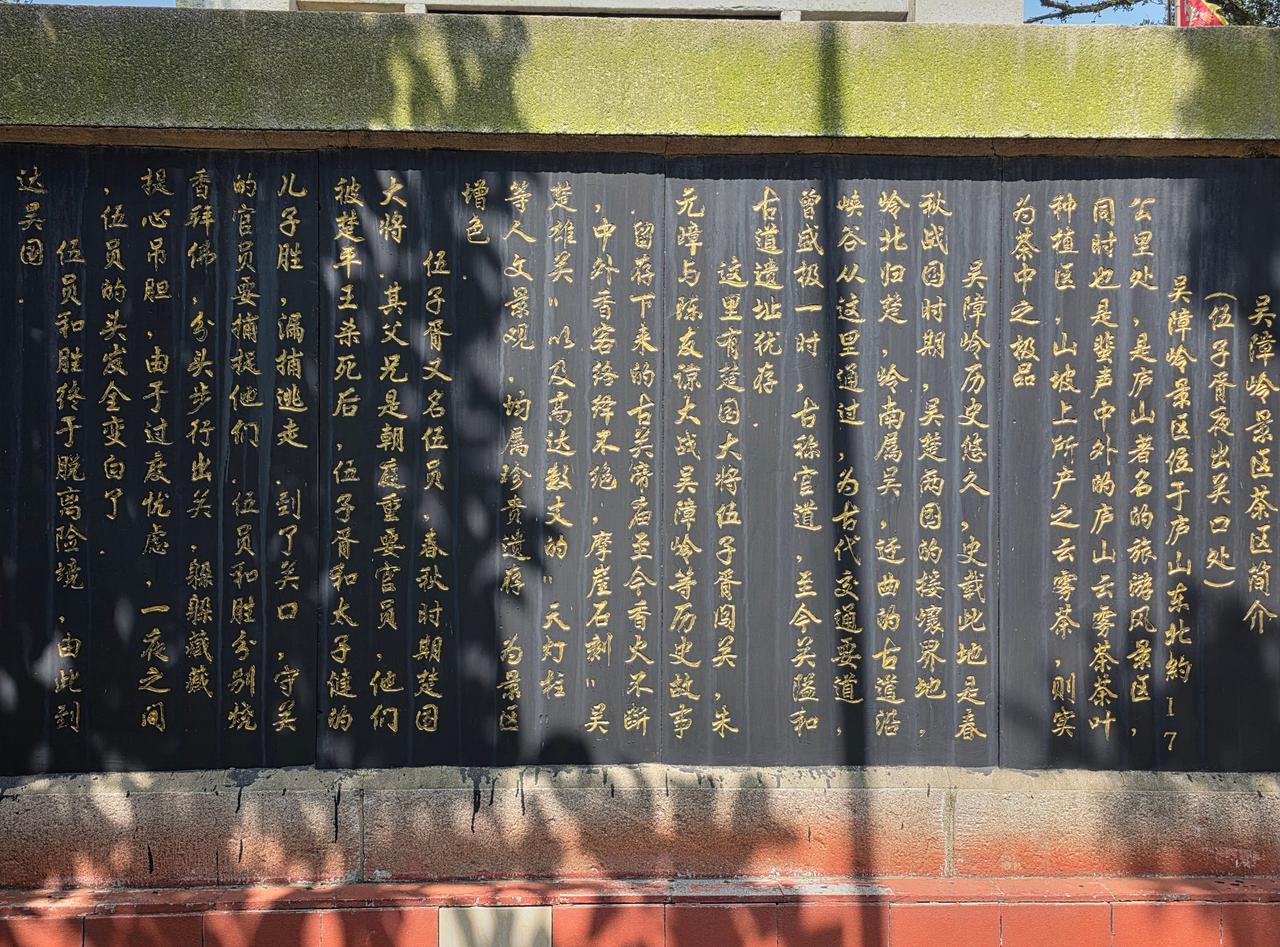 吴障岭景区茶区简介
(伍子胥夜出关口处)
吴障岭景区位于庐山东北約17
公里处,是庐山著名的旅游风景区,
同时也是蜚声中外的庐山云雾茶茶叶
种植区,山坡上所产之云雾茶,则实
为茶中之极品
吴障岭历史悠久,史载此地是春
秋战国时期,吴楚两国的接壤界地,
岭北归楚,岭南属吴,迂曲的古道沿
峡谷从这里通过,为古代交通要道,
曾盛极一时,古称官道,至今关隘和
古道遗址犹存.
这里有楚国大将伍子胥闯关,朱
元嶂与陈友谅大战吴障岭等历史故事
.留存下来的古关帝庙至今香火不断
,中外香客络绎不绝,摩崖石刻"吴
楚雄关"以及高达数丈的"天灯柱"
等人文景观.均属珍贵遗存 为景区
增色.
伍子胥又名伍员,春秋时期楚国
大将.其父兄是朝庭重要官员,他们
被楚平王杀死后,伍子胥和太子健的
儿子胜,漏捕逃走.到了关口,守关
的官员要捕捉他们.伍员和胜分别烧
香拜佛,分头步行出关,躲躲藏藏
提心吊胆,由于过度忧虑,一夜之间
,伍员的头发全变白了.
伍员和胜终于脱离险境,由此到
达吴国.